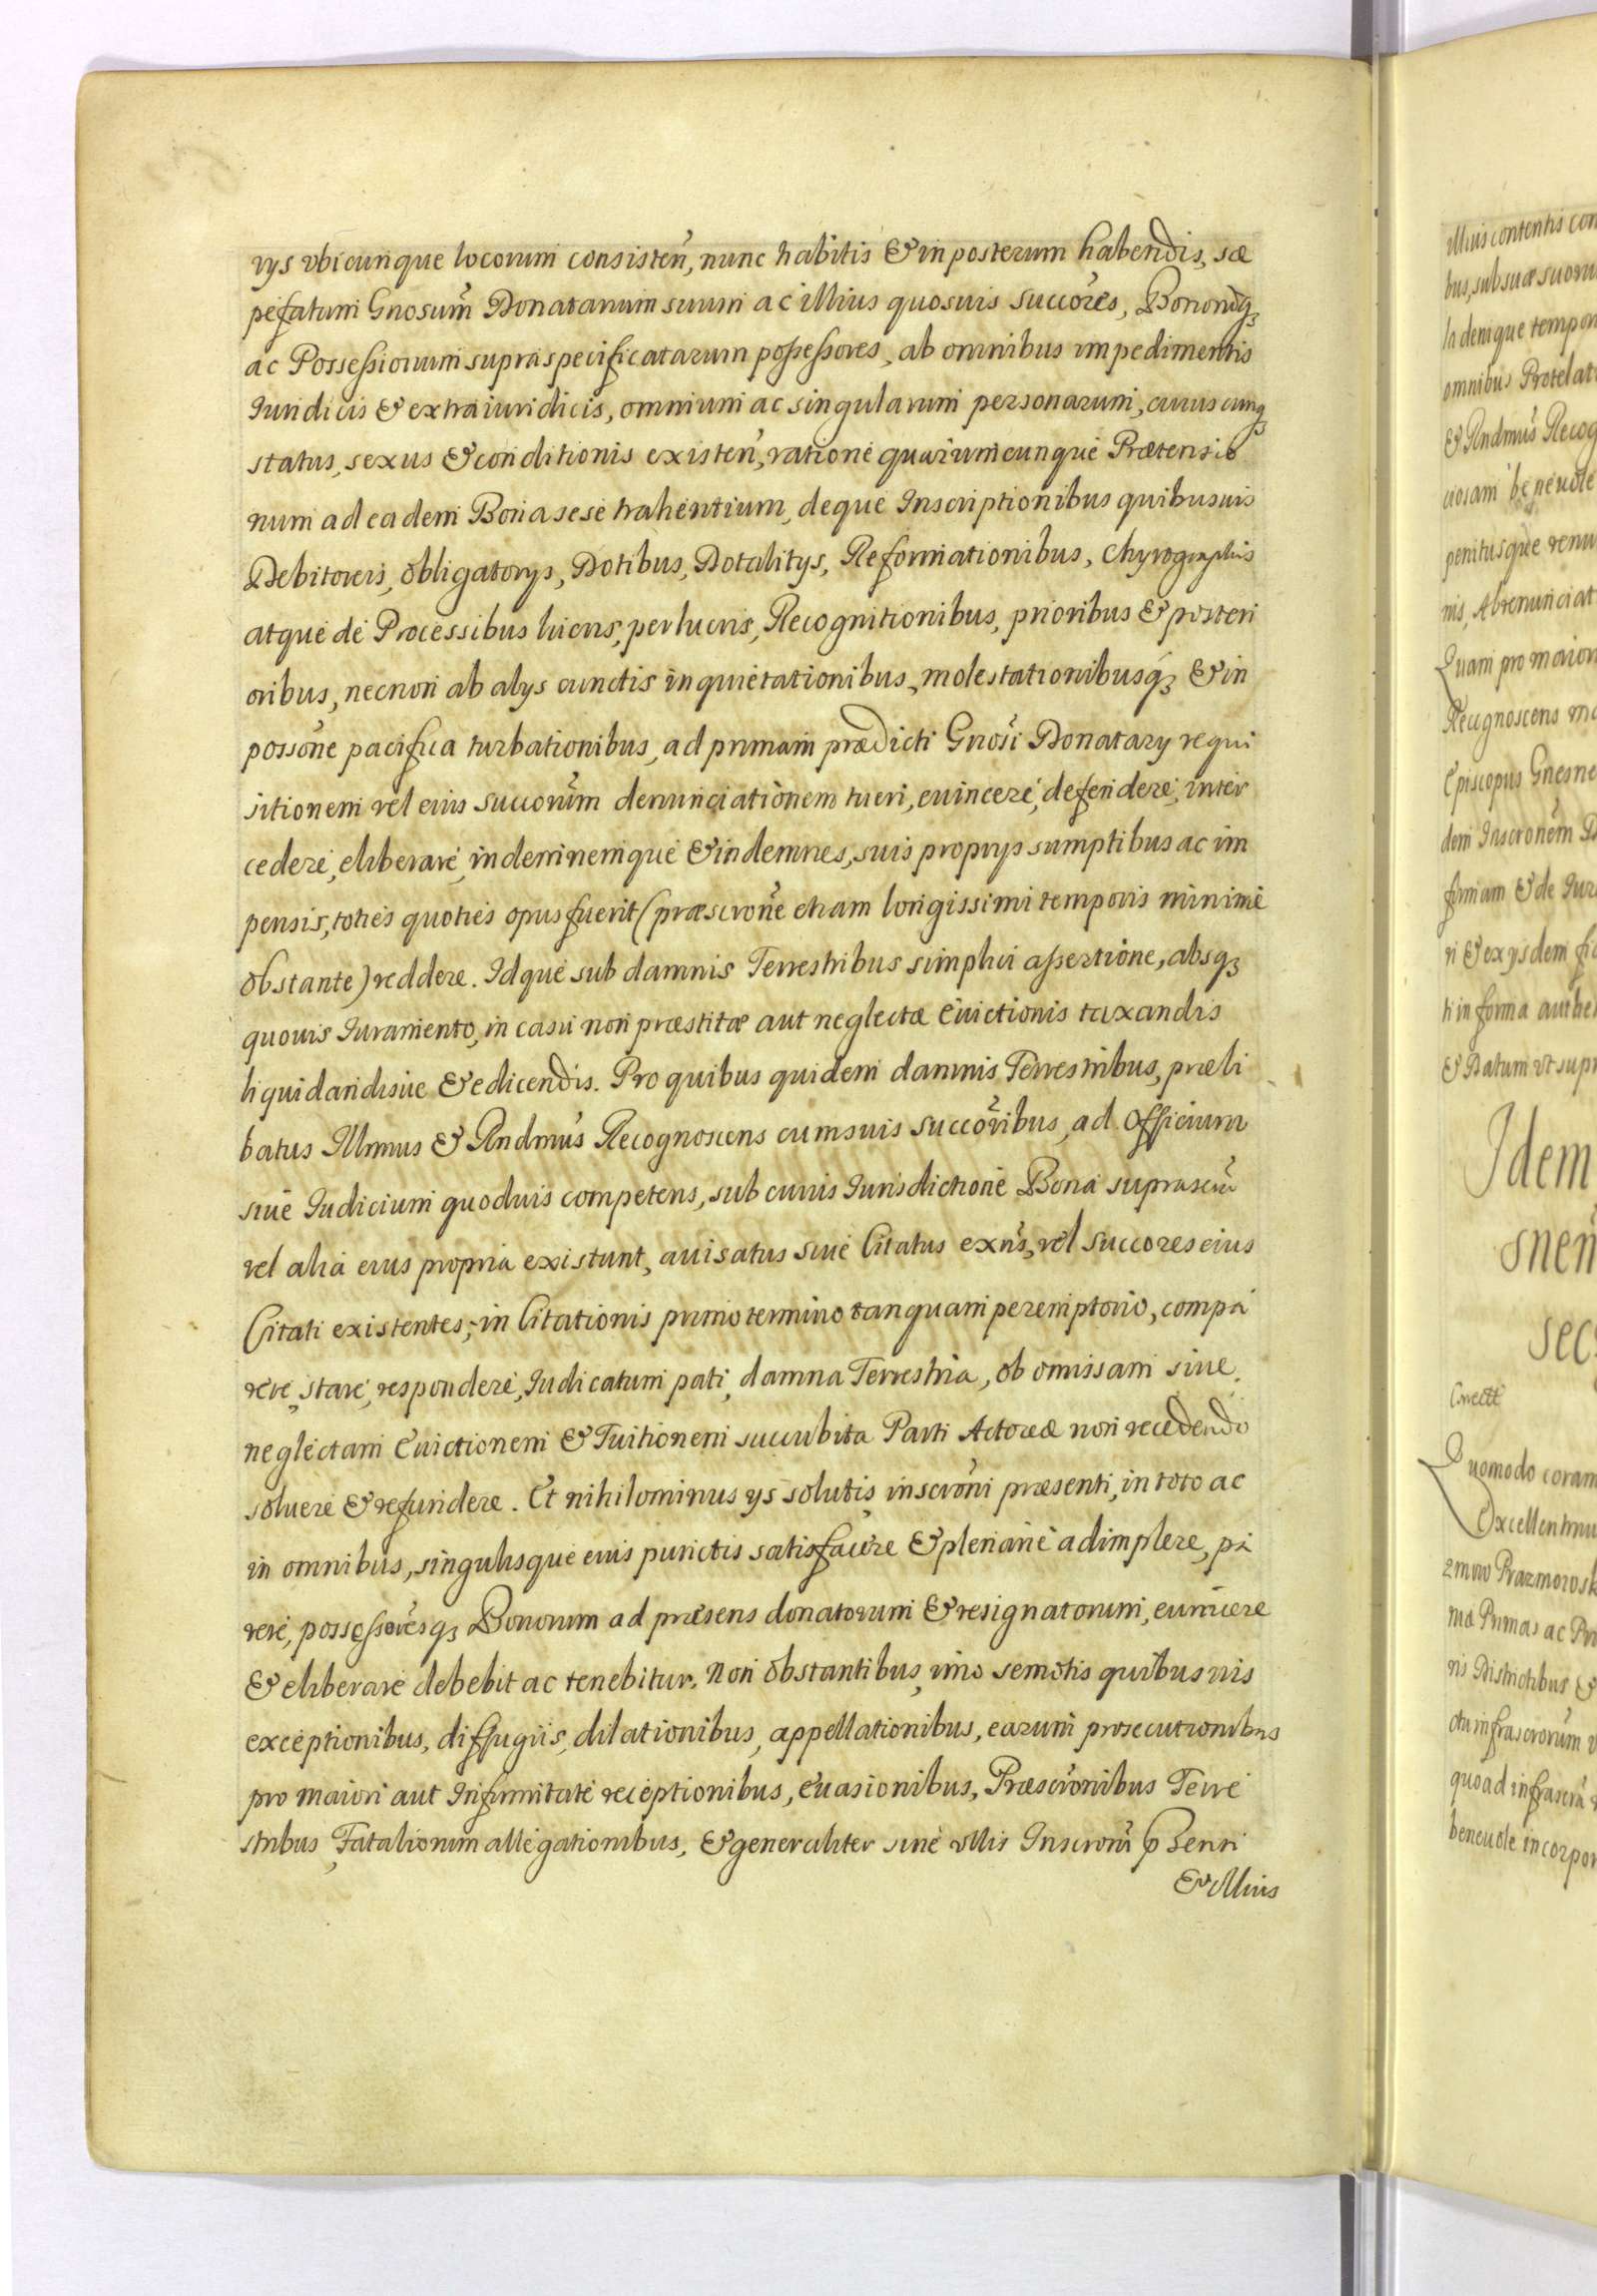 vys vbicunque locorum consisteñ, nunc habitis & in posterum habendis, sæ
pefatum Gnosum̃ Donatarium suum ac illius quosuis succores, Bonorũq₃
ac Possessionum supraspecificatarum possessores, ab omnibus impedimentis
Iuridicis & extraiuridicis, omnium ac singularum personarum, cuiuscunq₃
status, sexus & conditionis existeñ, ratione quarumcunque Prætensio
num ad eadem Bona sese trahentium, deque Inscriptionibus quibusuis
Debitoreis, obligatorys, Dotibus, Dotalitys, Reformationibus, Chyrographis
atque de Processibus lucris, perlucris, Recognitionibus, prioribus & posteri
oribus, necnon ab alys cunctis inquietationibus, molestationibusq₃ & in
possone pacifica turbationibus, ad primam prædicti Gnosi Donatary requi
sitionem vel eius succorum̃ denunciationem tueri, euincere, defendere, inter
cedere, eliberare, indemnemque & indemnes, suis proprys sumptibus ac im
pensis, toties quoties opus fuerit (præscrone etiam longissimi temporis minime
obstante) reddere. Idque sub damnis Terrestribus simplici assertione, absq₃
quouis Iuramento, in casu non præstitæ aut neglectæ Euictionis taxandis
liquidandisue & edicendis. Pro quibus quidem damnis Terrestribus, præli
batus Illmus & Rndmus Recognoscens cum suis succoribus, ad Officium
siue Iudicium quoduis competens, sub cuius Iurisdictione Bona suprascrã
vel alia eius propria existunt, auisatus siue Citatus exns, vel succores eius
Citati existentes, in Citationis primo termino tanquam peremptorio, compa
rere, stare, respondere, Iudicatum pati, damna Terrestria, ob omissam siue
neglectam Euictionem & Tuitionem succubita Parti Actoreæ non recedendo
soluere & refundere. Et nihilominus ys solutis inscroni præsenti, in toto ac
in omnibus, singulisque eius punctis satisfacere & plenarie adimplere, pa
rere, possessoresq₃ Bonorum ad præsens donatorum & resignatorum, euincere
& eliberare debebit ac tenebitur. Non obstantibus, imo semotis quibusuis
exceptionibus, diffugiis, dilationibus, appellationibus, earum prosecutionibus
pro maiori aut Infirmitate receptionibus, Euasionibus, Præscronibus Terre
stribus, Fatalionum allegationibus, & generaliter sine vllis Inscroni pꝛsenti
& illius
illius contentis con
bus, sub suæ suoru
la denique tempor
omnibus Protelat
& Rndmus Recog
ciosam beneuole
penitusque renu
nis, Abrenunciat
Quam pro maiori
Recognoscens ma
Episcopus Gnesne
dem Inscronem
firmam & de Iur
ri & ex ysdem
ti in forma authe
& Datum vt supr
Idem
Snen
sec
Correcte
Quomodo coram
Excellentmu
zmow Prazmowsk
ma Primas ac Pri
ris Districtibus &
infrascrorum
quoad infrascra
beneuole incorpor